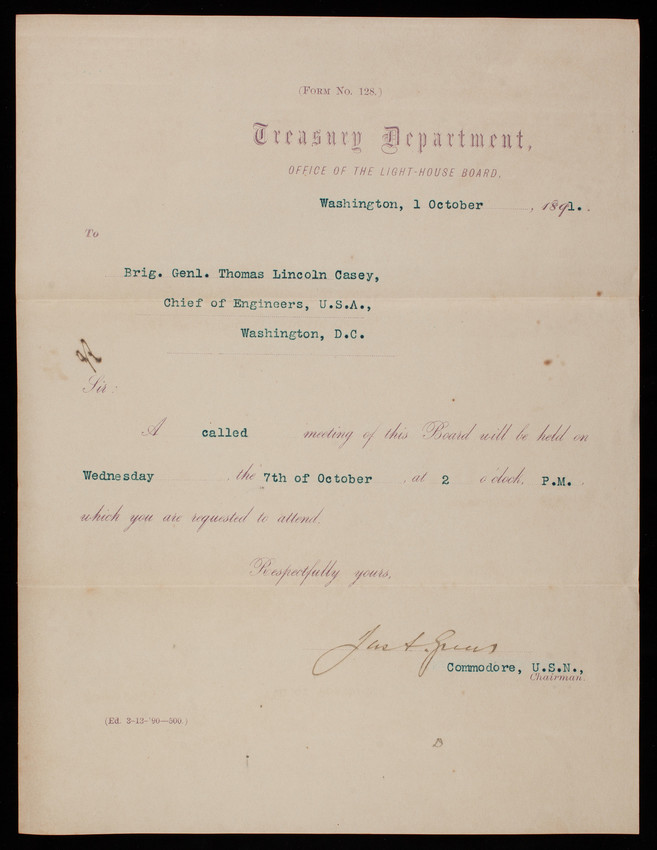 (FORM No. 128.)
Treasury Department,
OFFICE OF THE LIGHT-HOUSE BOARD,
Washington, 1 October, 1891.
To
Brig. Genl. Thomas Lincoln Casey,
Chief of Engineers, U.S.A.,
Washington, D.C.
Sir:
A called meeting of this Board will be held on
Wednesday, the 7th of October, at 2 o'clock, P.M.,
which you are requested to attend.
Respectfully yours,
Jas A. Greer
Commodore, U.S.N.,
Chairman.
(Ed. 3-12-'90—500.)